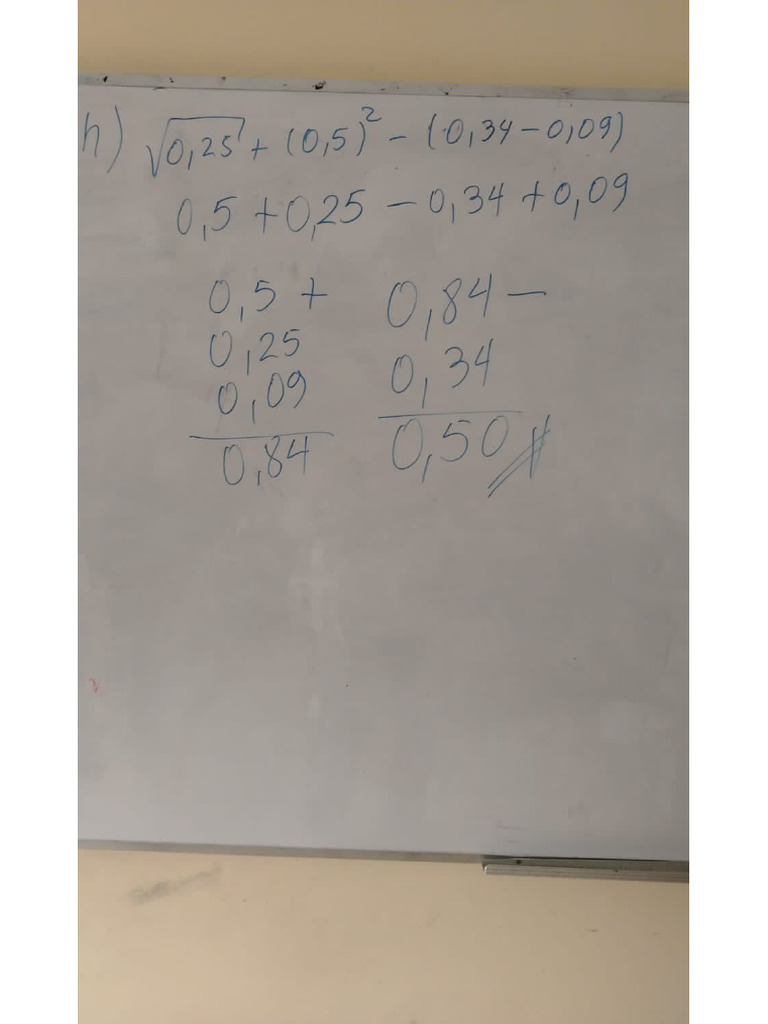 h) √0,25 + (0,5)² - (0,34 - 0,09)
0,5 + 0,25 - 0,34 + 0,09
0,5 + 0,84 -
0,25 0,34
0,09 0,50
0,84